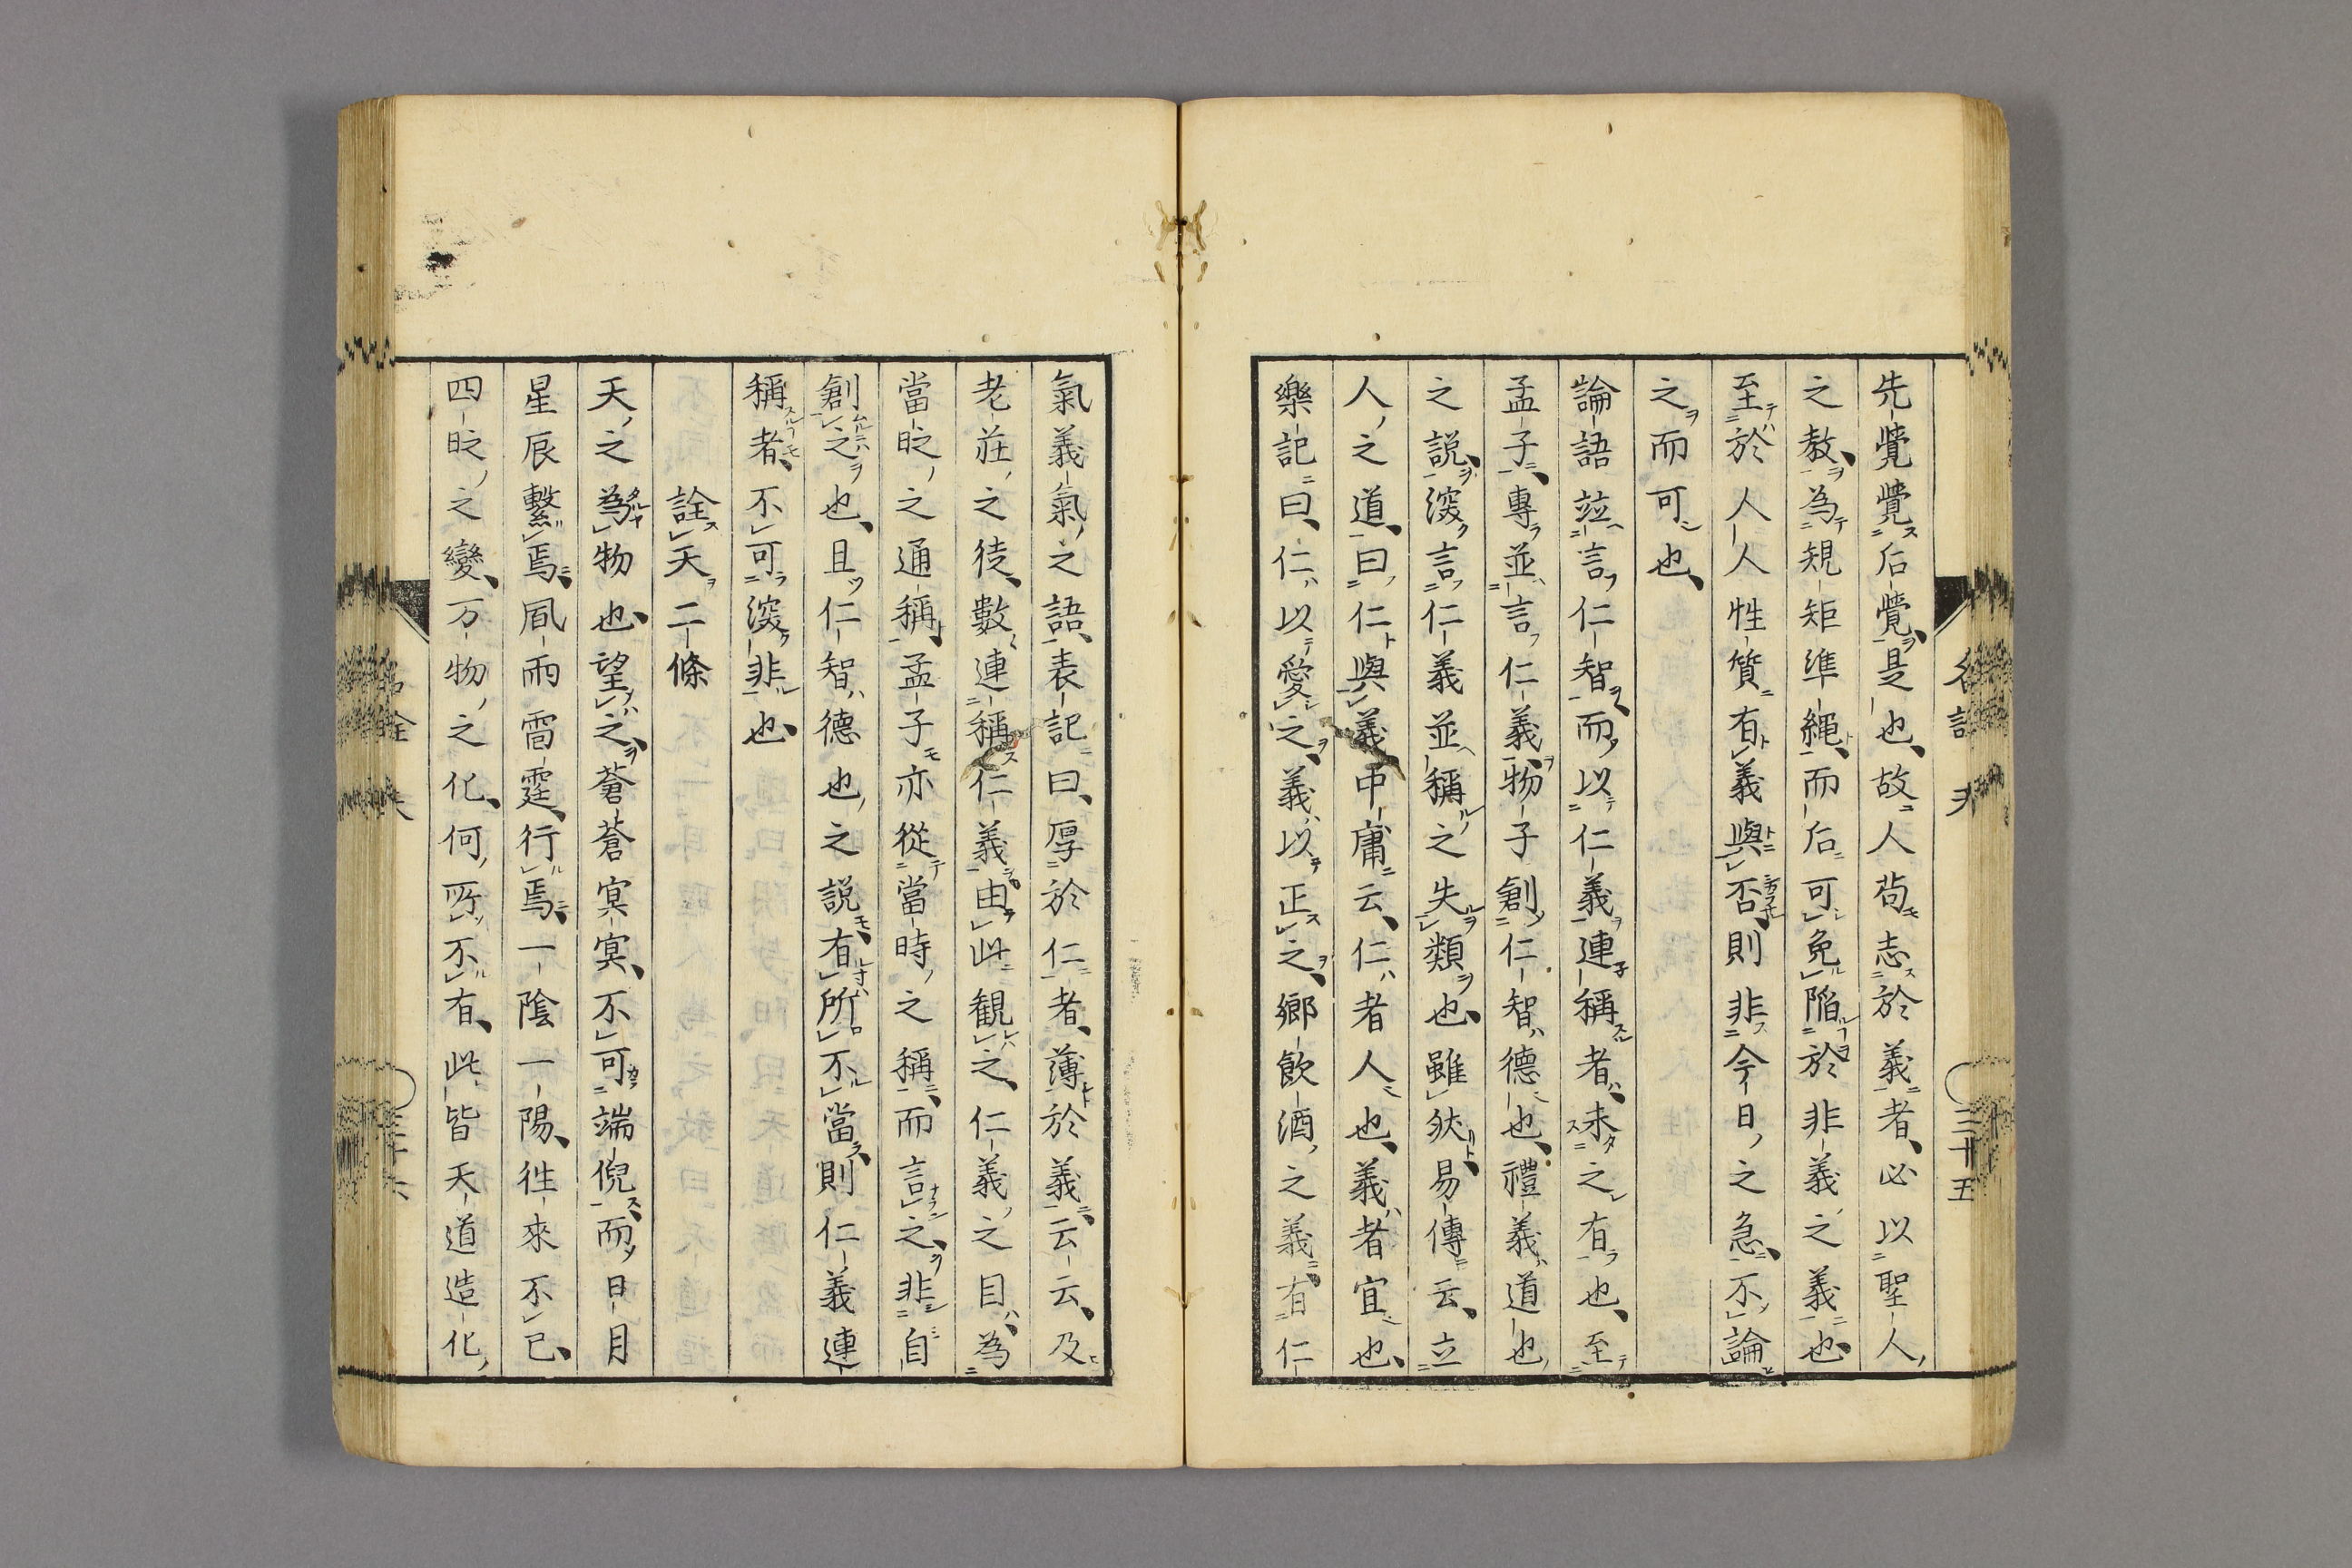 先覺覺后覺是也故人苟志於義者必以聖人
之教為規矩準繩而后可免陷於非義之義也
至於人人性質有義與否則非今日之急不論
之而可也
論語竝言仁智而以仁義連稱者未之有也至
孟子專並言仁義物子創仁智德也禮義道也
之説深言仁義並稱之失類也雖然易傳云立
人之道曰仁與義中庸云仁者人也義者宜也
樂記曰仁以愛之義以正之鄉飲酒之義有仁
三十五
氣義氣之語表記曰厚於仁者薄於義云云及
老莊之徒數連稱仁義由此観之仁義之目為
當时之通稱孟子亦從當時之稱而言之非自
創之也且仁智德也之説有所不當則仁義連
稱者不可深非也
詮天二條
天之為物也望之蒼蒼冥冥不可端倪而日月
星辰繫焉風雨雷霆行焉一陰一陽往來不已
四时之變万物之化何所不有此皆天道造化